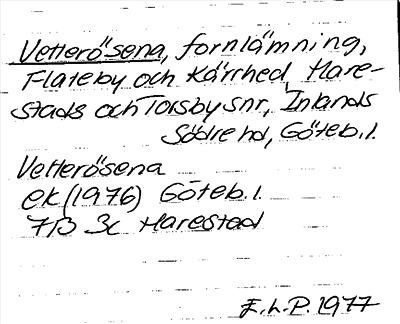 Vetterösena, fornlämning,
Flateby och Kärrhed, Hare-
stads och Torsby snr, Inlands
Södre hd, Göteb.l.
Vetterösena
ek (1976) Göteb.l.
7B 3c Harestad
E.L.P. 1977